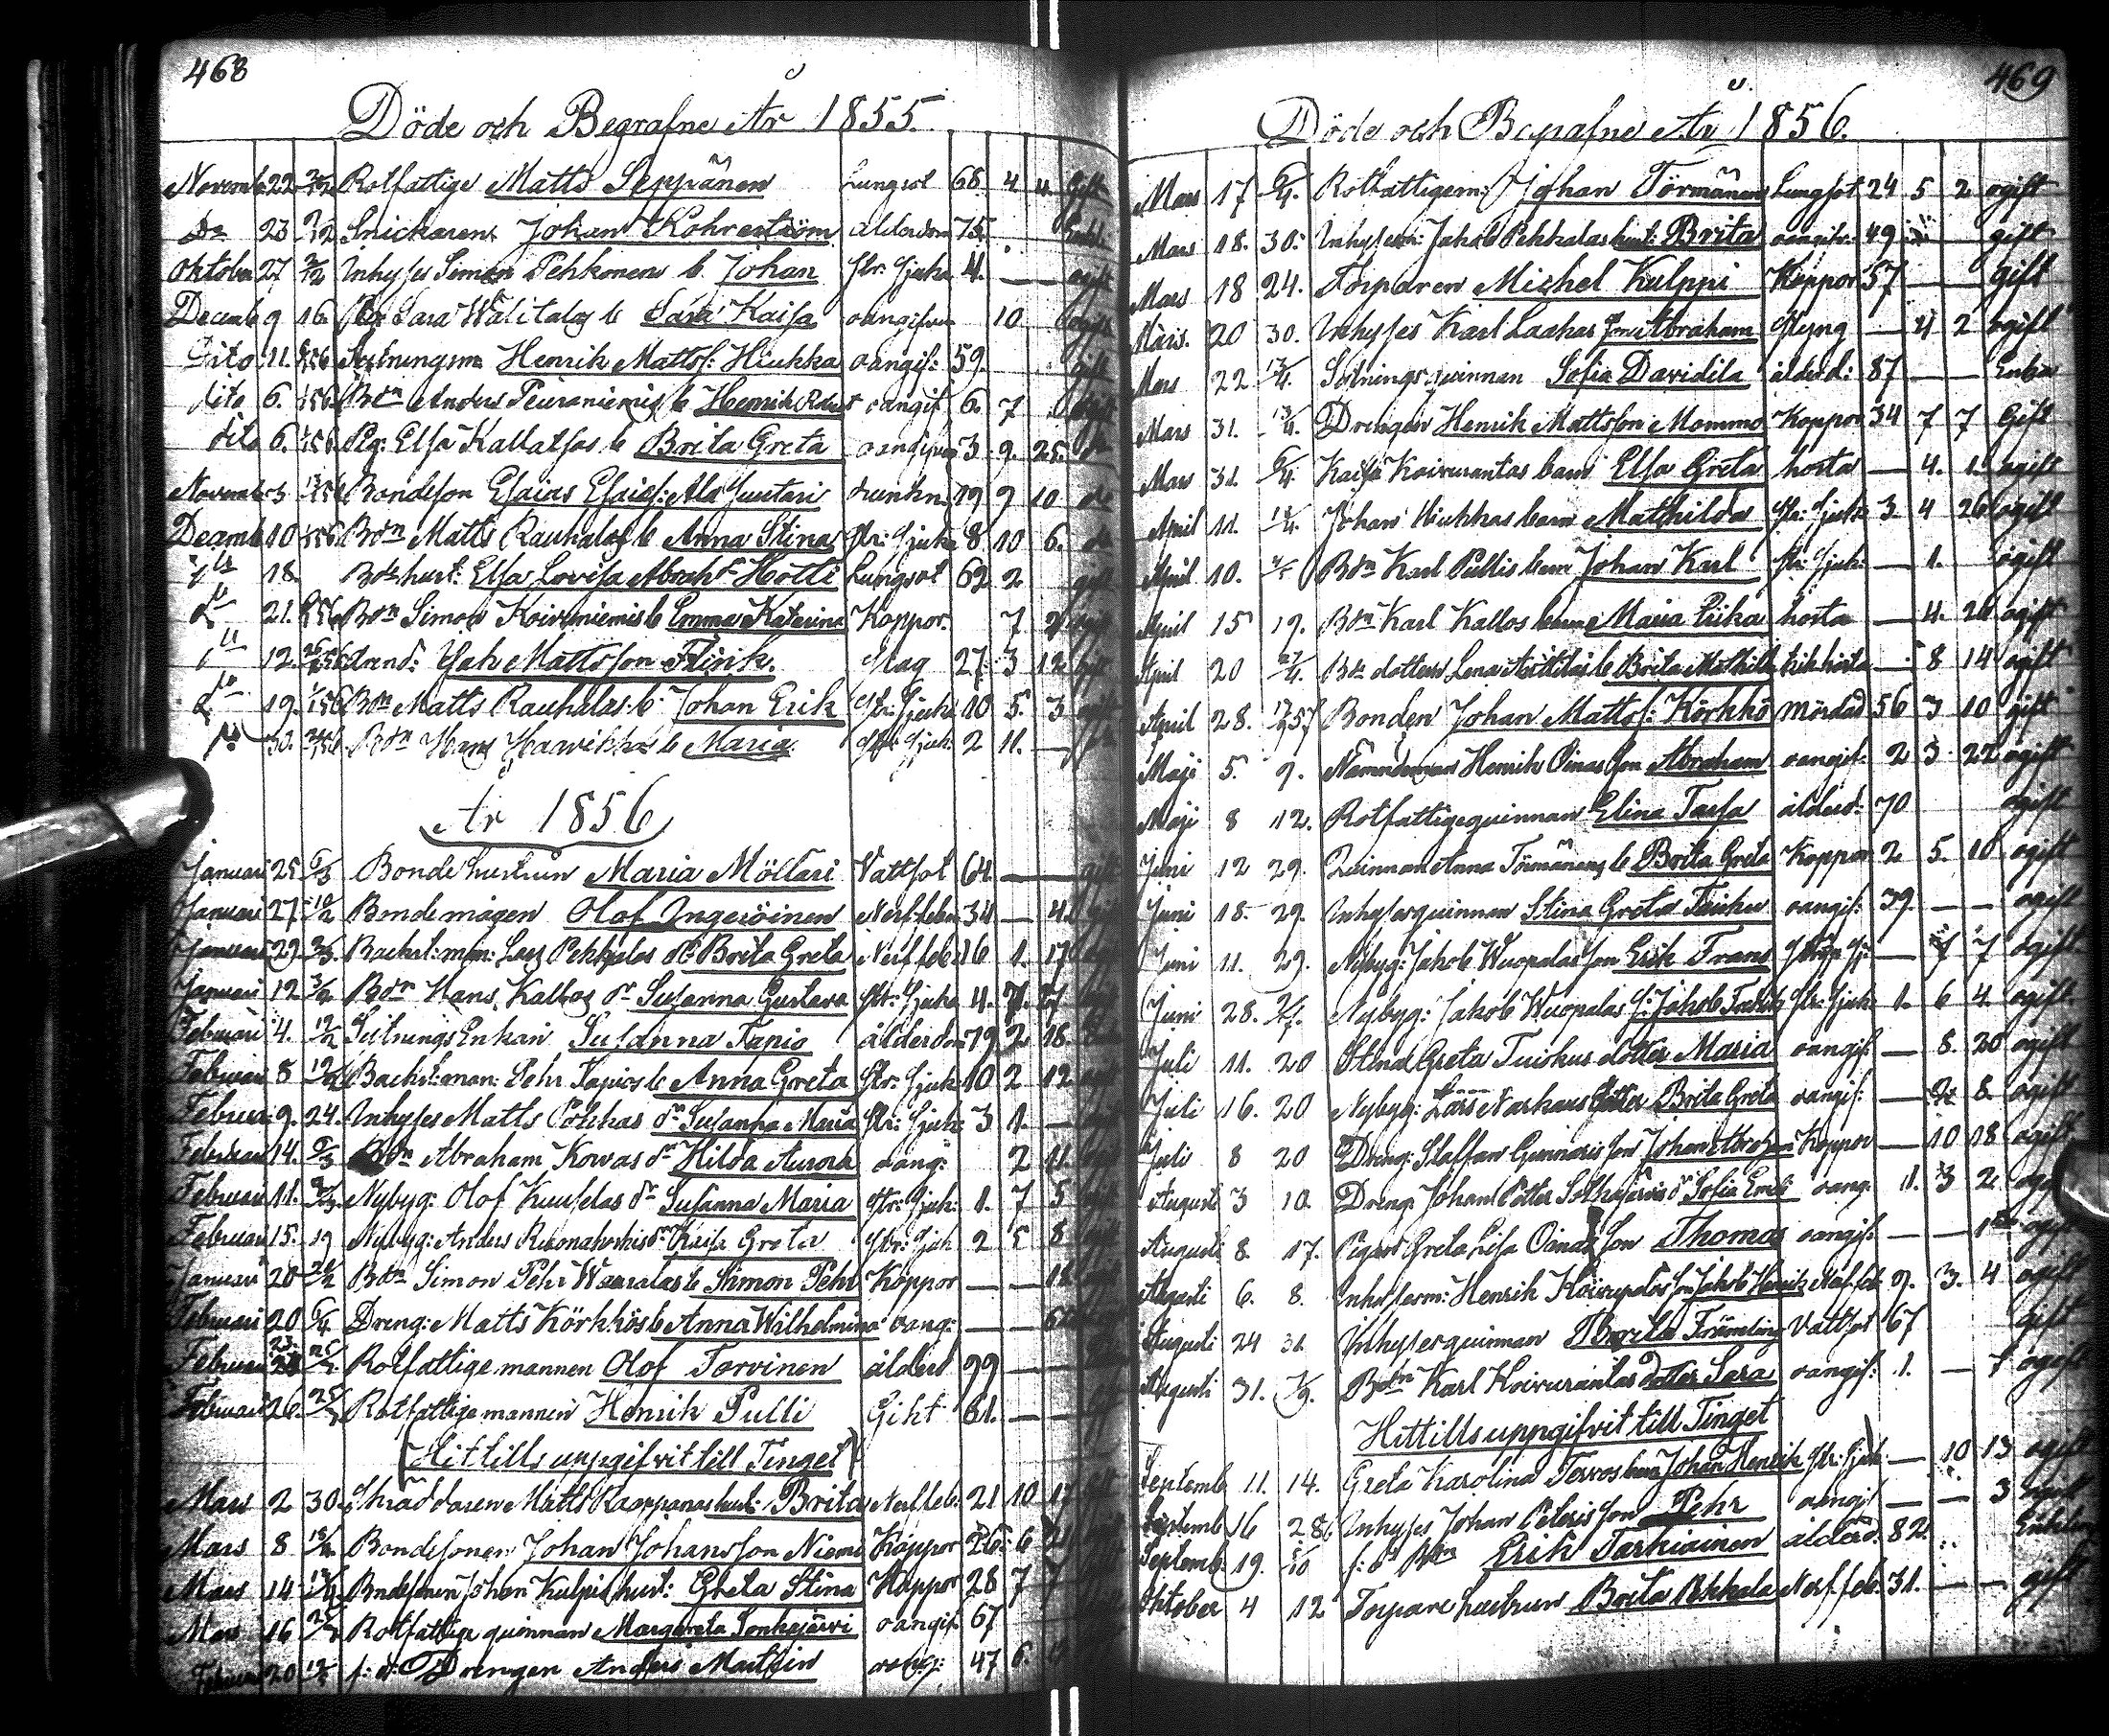 468
Döde och Begrafne År 1855.
Novemb 22 Rotfattige Matts Seppänen Lungsot 68. 4 4 Gift
Do 23 Snickaren Johan Kohrström ålderdom 75
Oktober 27 Inhyses Simon Pehkonens b. Johan Str: Sjuka 4. —
Decemb 9 16. Pig Sara Wälitalos b Sara Kaisa oangifven 10
Dito 11. Sytningsm Henrik Mattss: Hiukka oangif: 59.
dito 6. Bdn Anders Peuraniemis b Henrik oangif 6. 7
dito 6. Pig: Elsa Kallatsas b Brita Greta oangifven 3 9. 25. do
Novemb 3 Bondeson Esaias Esaiss: Ala Juntari drunkn. 19 9 10 do
Decemb 10 Bdn Matts Rauhalas b Anna Stina Str: Sjuka 8 10 6. do
do 18. Bdshust: Elsa Lovisa Abrahdr Hotti Lungsot 62 2
do 21. Bdn Simon Koivuniemis b Emma Katarina Koppor. 7
do 12. Isak Mattsson Slag 27. 3 12
do 19. Bdn Matts Rauhalas b. Johan Erik Str: Sjuka 10 5. 3
do 30. Bdn Hans Haarikkas b Maria Str Sjuk 2 11. —
År 1856
Januari 25 6/3 Bonde hustrun Maria Möllari Vattsot 64. — gift
Januari 27 10/2 Bondemågen Olof Ingeröinen Nerffeber 34 — 4.
Januari 29. Backst: man: Lars Pekkalas dr Brita Greta Nerffeb. 16 1. 17
Januari 12 3/2 Bdn Hans Kallos dr Susanna Gustava Str: Sjuka 4. 7. 27
Februari 4. 12/2 Sytnings Enkan Susanna Tapio ålderdom 79 2 18.
Februari 8 Backst: man: Pehr Tapios b Anna Greta Str: Sjuk 10 2 12
Februari 9. 24. Inhyses Matts Poikas dr Susanna Maria Str: Sjuk 3 1. —
Februari 14. 9/3 Bdn Abraham Kovas dr Hilda Aurora oang: 2 11.
Februari 11. Nybyg: Olof Kuuselas dr Susanna Maria Str: Sjuk: 1. 7 5
Februari 15. 19 Nybyg: Anders dr Kaisa Greta Str: Sjuk 2 5 8
Januari 20 Bdn Simon Pehr Waaralas b Simon Pehr Koppor — — 18
Februari 20 6/4 Dreng: Matts Körkkös b Anna Wilhelmina oang: — —
Februari 23. Rotfattige mannen Olof Torvinen ålderd 99 —
Februari 26. Rotfattige mannen Henrik Pulli Gikt 61. — —
(Hittills uppgifvit till Tinget)
Mars 2 30. Skräddaren Matts Kaappanas hust: Brita Nerffeb. 21 10 17
Mars 8 Bondesonen Johan Johansson Niemi Koppor 26. 6
Mars 14 Bndesonen Johan Kulpis hust: Greta Stina Koppor 28 7 7
Mars 16 Rotfattige quinnan Margareta Sonkajärvi oangif. 67
Februari 20 f: d: Drengen Anders Martin oang: 47 6.
469
Döde och Begrafne År 1856.
Mars 17 6/4. Rotfattigem: Johan Törmänen Lungsot 24 5 2 ogift
Mars 18. 30. Inhysesm: Jakob Pekkalas hust: Brita oangifv. 49 — gift
Mars 18 24. Torparen Mickel Kulppi Koppor 57 — — gift
Mars. 20 30. Inhyses Karl Laakas Son Abraham Styng — 4 2 ogift
Mars 22 13/4. Sytningsquinnan Sofia Davidila ålderd: 87 — — Enka
Mars 31. 13/4. Drengen Henrik Mattsson Mommo Koppor 34 7 7 Gift
Mars 31. 6/4. Kaisa Koivurantas barn Elsa Greta hosta — 4. 1. ogift
April 11. Johan Hiukkas barn Mathilda Str: Sjuka 3. 4 26 ogift
April 10. Bdn Karl Pullis barn Johan Karl Str: Sjuk: — 1. ogift
April 15 19. Bdn Karl Kallos barn Maria Erika hosta — 4. 26 ogift
April 20 27/4. Bds dottern Lena b Brita Mathilda kikhosta — 8 14 ogift
April 28. Bonden Johan Mattss: Körkkö mördad 56 3 10 gift
Maji 5. 9. Nämndeman Henrik Oinas Son Abraham oangif. 2 3 22 ogift
Maji 8 12. Rotfattigequinnan Elina Tassa ålderd. 70 ogift
Juni 12 29. Quinnan Anna Törmänens b Brita Greta Koppor 2 5. 10 ogift
Juni 18. 29. Inhysesquinnan Stina Greta Tuisku oangif: 39. — — ogift
Juni 11. 29. Nybyg: Jakob Wuopalas Son Erik Frans — 7 7 ogift
Juni 28. Nybyg: Jakob Wuopalas S: Jakob Fredrik Str: Sjuk: 1. 6 4. ogift.
Juli 11. 20 Stina Greta Tuiskus dotter Maria oangif. — 8. 20 ogift
Juli 16. 20 Nybyg: Lars Naskans dotter Brita Greta oangif: — 8. ogift
Juli 8 20 Dreng: Staffan Gunnaris Son Johan Abraham Koppor — 10 18 ogift
Augusti 3 10. Dreng: Johan Petter dr Sofia oang. 11. 3 2
Augusti 8. 17. Pigan Greta Lisa Oinas Son Thomas oangif. — — ogift
Augusti 6. 8. Inhysesm: Henrik Koivupalos Son Jakob Henrik Nerffeb 9. 3. 4 ogift
Augusti 24 31 Inhysesquinnan Brita Främling Vattsot 67 gift
Augusti 31. 7/9. Bdn Karl Koivurantas dotter Sara oangif. 1. — 1 ogift
Hittills uppgifvit till Tinget
Septemb. 11. 14. Greta Karolina Tervos barn Johan Henrik Str: Sjuk — 10 13 ogift
Septemb 16 28. Inhyses Johan Peteris Son Pehr oangif — — 3 ogift
Septemb. 19. 5/10 f: d: Bdn Erik Tarkiainen ålderd. 82.
Oktober 4 12 Torpare hustrun Brita Pekkala Nerf.feb. 31. — — gift